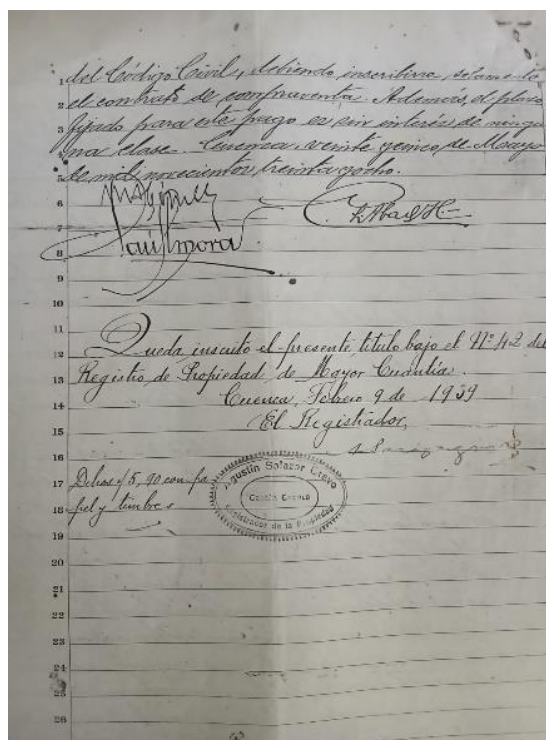 1 del Código Civil, debiendo inscribirse solamente
2 el contrato de compraventa. Además, el plazo
3 fijado para este pago es sin interés de ningu
4 na clase. Cuenca, veinte y cinco, de Mayo
5 de mil novecientos treinta y ocho.
6
7
8
9
10
11 Queda inscrito el presente titulo bajo el Nº 42 del
12 Registro de Propiedad de Mayor Cuantía.
13 Cuenca, Febrero 9 de 1939
14 El Registrador,
15
16 Agustin Salazar Crevo
17 Dchos $ 5,90 con pa
Cantón Cuenca
18 pel y timbres
Registrador de la Propiedad
19
20
21
22
23
24
25
26